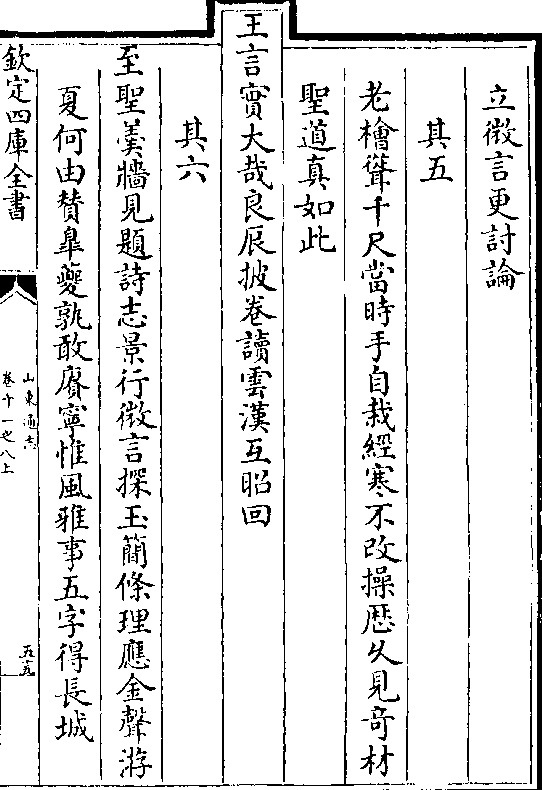 立微言更討論
其五
老檜聳千尺當時手自栽經寒不改操歴久見竒材
聖道真如此
王言實大哉良辰披卷讀雲漢互昭回
其六
至聖羮牆見題詩志景行微言探玉簡條理應金聲游
夏何由賛臯夔孰敢賡寧惟風雅事五字得長城
欽定四庫全書
山東通志
卷十一之八上
五五